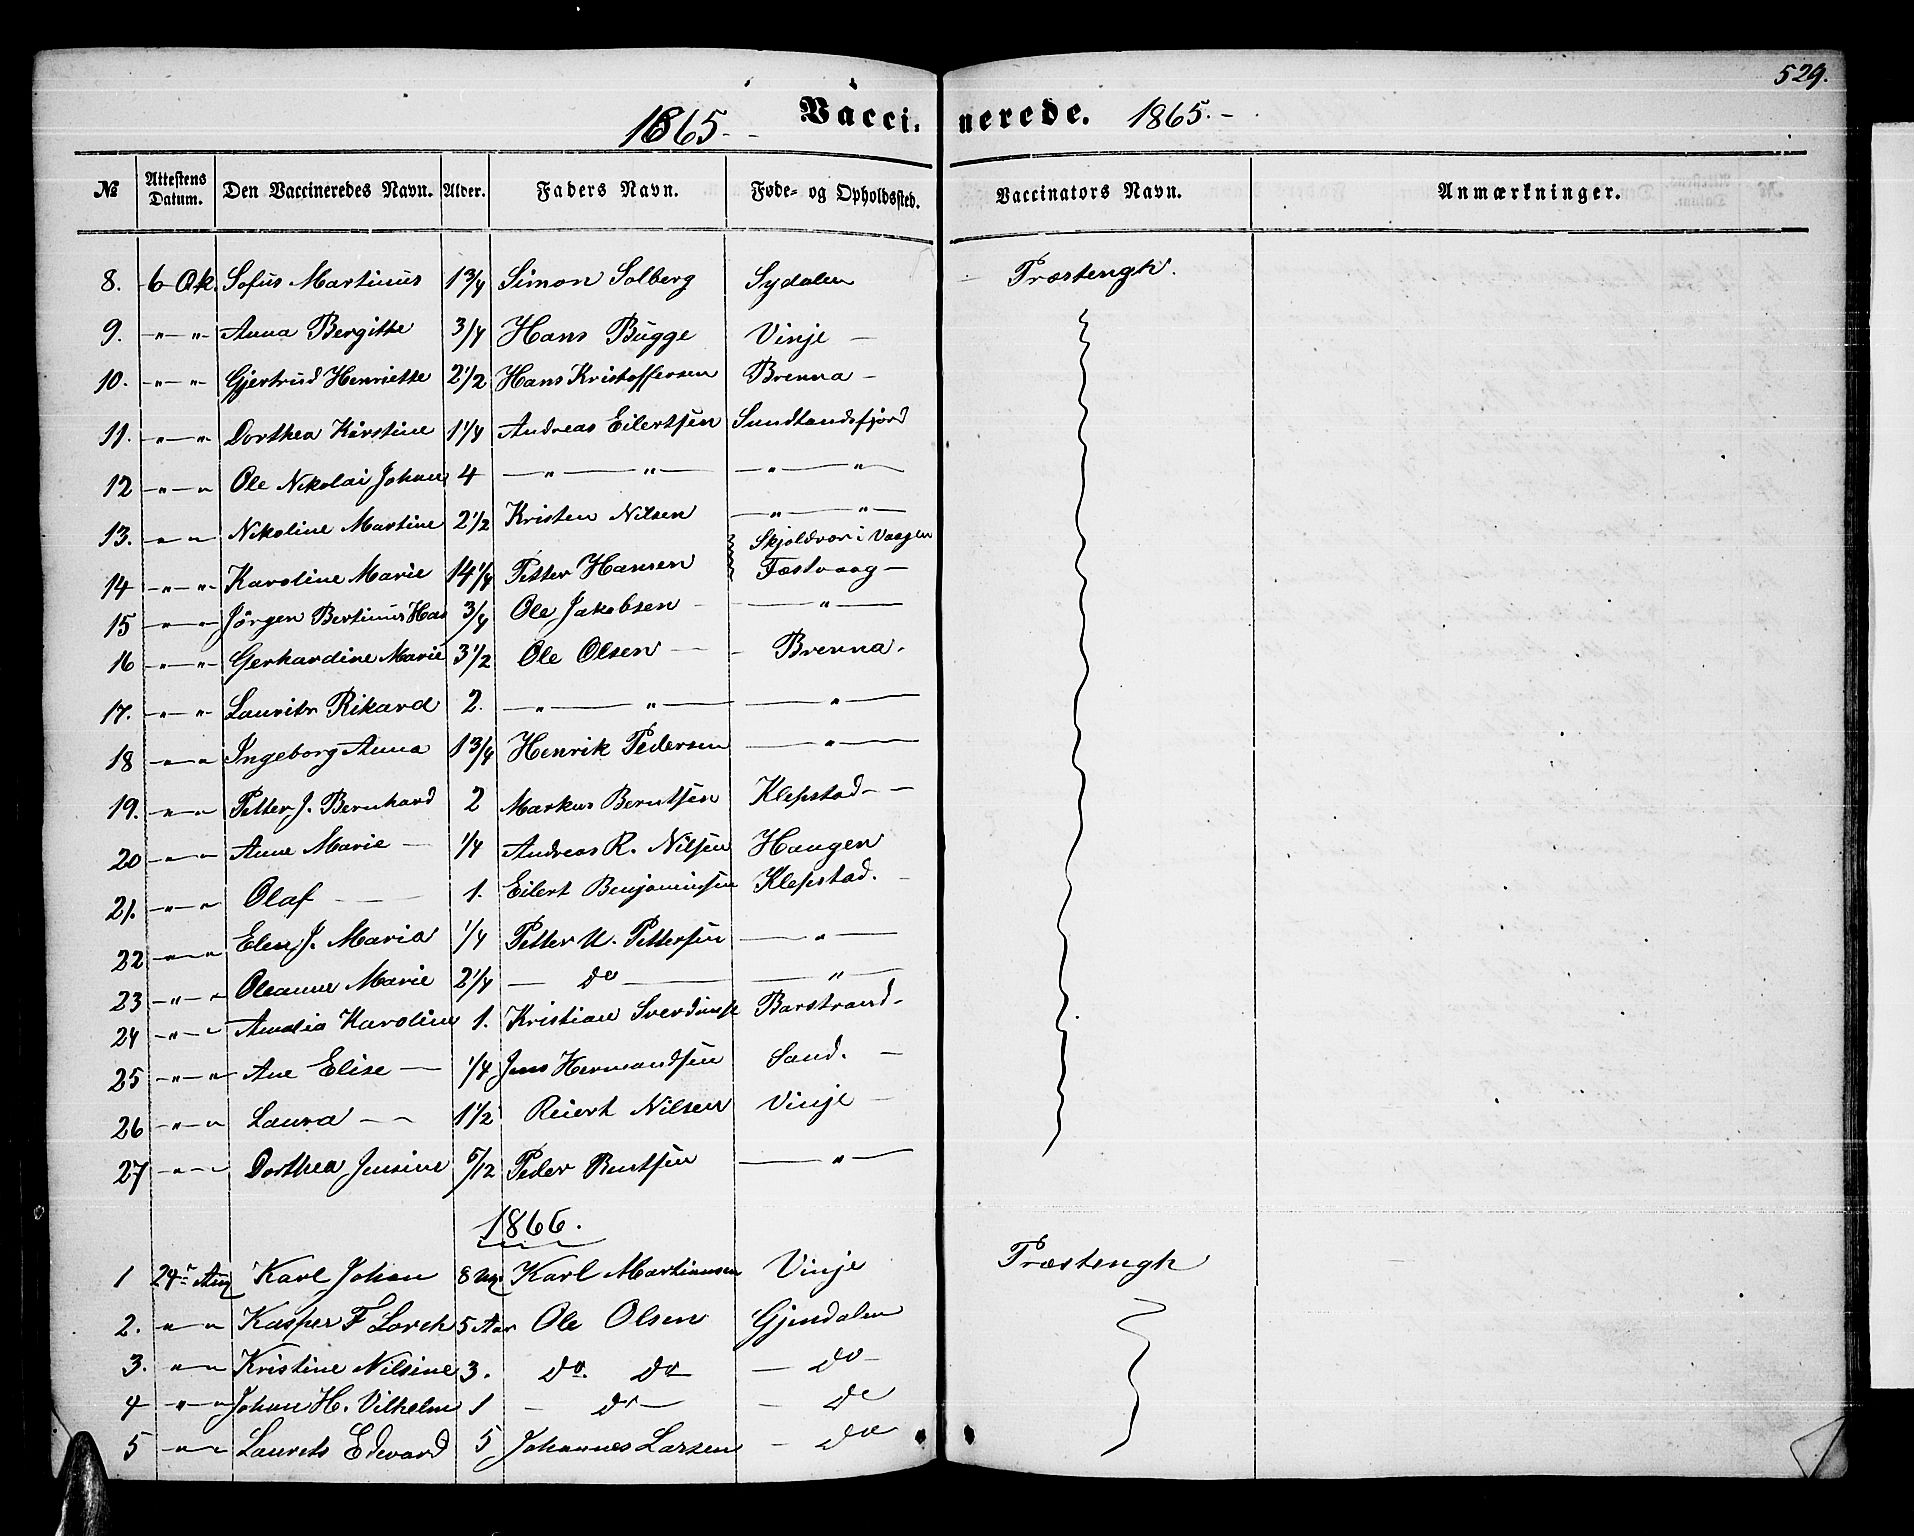 529.
1865. Vaccinerede. 1865.
№ Attestens Datum. Den Vaccineredes Navn. Alder. Faders Navn. Føde- og Opholdssted. Vaccinators Navn. Anmærkninger.
8. 6 Ok. Sofus Martinus 1 3/4 Simon Solberg Sydalen Præstengh.
9. " " Anna Bergitte 3/4 Hans Bugge Vinje
10. " " Gjertrud Henriette 2 1/2 Hans Kristoffersen Brenna
11. " " Dorthea Kirstine 1 1/4 Andreas Eilertsen Sundlandsfjord
12 " " Ole Nikolai Johan 4 " " " "
13. " " Nikoline Martine 2 1/2 Kristen Nilsen " "
Skjoldvor i Vaagen
14 " " Karoline Marie 14 1/4 Petter Hansen Festvaag
15 " " Jörgen Bertinus Has 3/4 Ole Jakobsen "
16 " " Gerhardine Marie 3 1/2 Ole Olsen Brenna.
17. " " Laurits Rikard 2. " " "
18 " " Ingeborg Anna 1 3/4 Henrik Pedersen "
19. " " Petter J. Bernhard 2 Markus Berntsen Klepstad
20 " " Anne Marie 1/4 Andreas R. Nilsen Haugen
21. " " Olaf 1. Eilert Benjaminsen Klepstad.
22 " " Elen J. Maria 1/4 Petter U. Pettersen "
23 " " Oleanne Marie 2 1/4 do "
24 " " Amalia Karoline 1. Kristian Barstrand
25 " " Ane Elise 1/4 Jens Hermandsen Sand.
26 " " Laura 1 1/2 Reiert Nilsen Vinje
27 " " Dorthea Jensine 5/12 Peder "
1866.
1 24de Aug Karl Johan 8 Karl Martinusen Vinje Præstengh
2. " " Kasper F Lorch 5 Aar Ole Olsen Gjendalen
3. " " Kristine Nilsine 3. do. do do
4 " " Johan H. Vilhelm 1 do do
5 " " Laurits Edevard 5 Johannes Larsen do